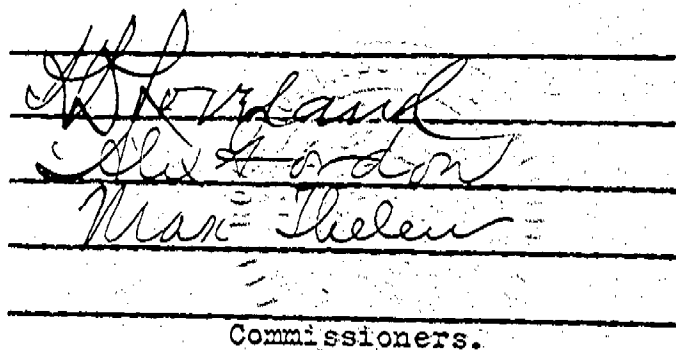 H D Loveland
Alex Gordon
Max Thelen
Commissioners.